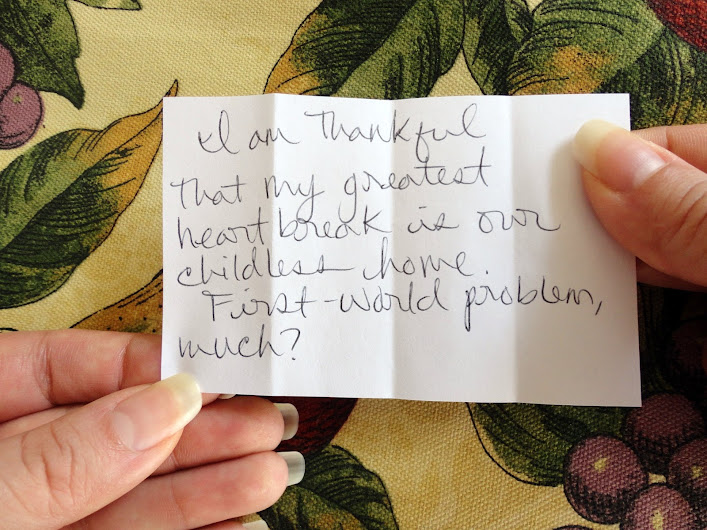 I am Thankful
that my greatest
heartbreak is our
childless home.
First-world problem,
much?